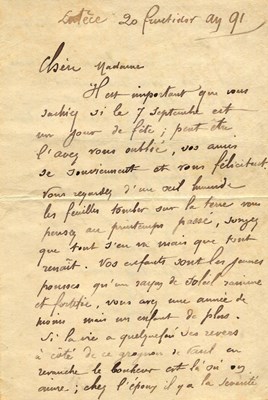 Lutèce 20 fructidor an 91
Chère Madame
Il est important que vous
sachiez si le 7 Septembre est
un jour de fête ; peut être
l'avez vous oublié, vos amis
se souviennent et vous félicitent
Vous regardez d'un œil humide
les feuilles tomber sur la terre vous
pensez au printemps passé, songez
que tout s'en va mais que tout
renaît. Vos enfants sont les jeunes
pousses qu'un rayon de soleil ranime
et fortifie, vous avez une année de
moins mais un enfant de plus.
Si la vie a quelquefois des revers
à côté de ce de deuil en
revanche le bonheur est là où on
aime ; chez l'époux il y a la sévérité